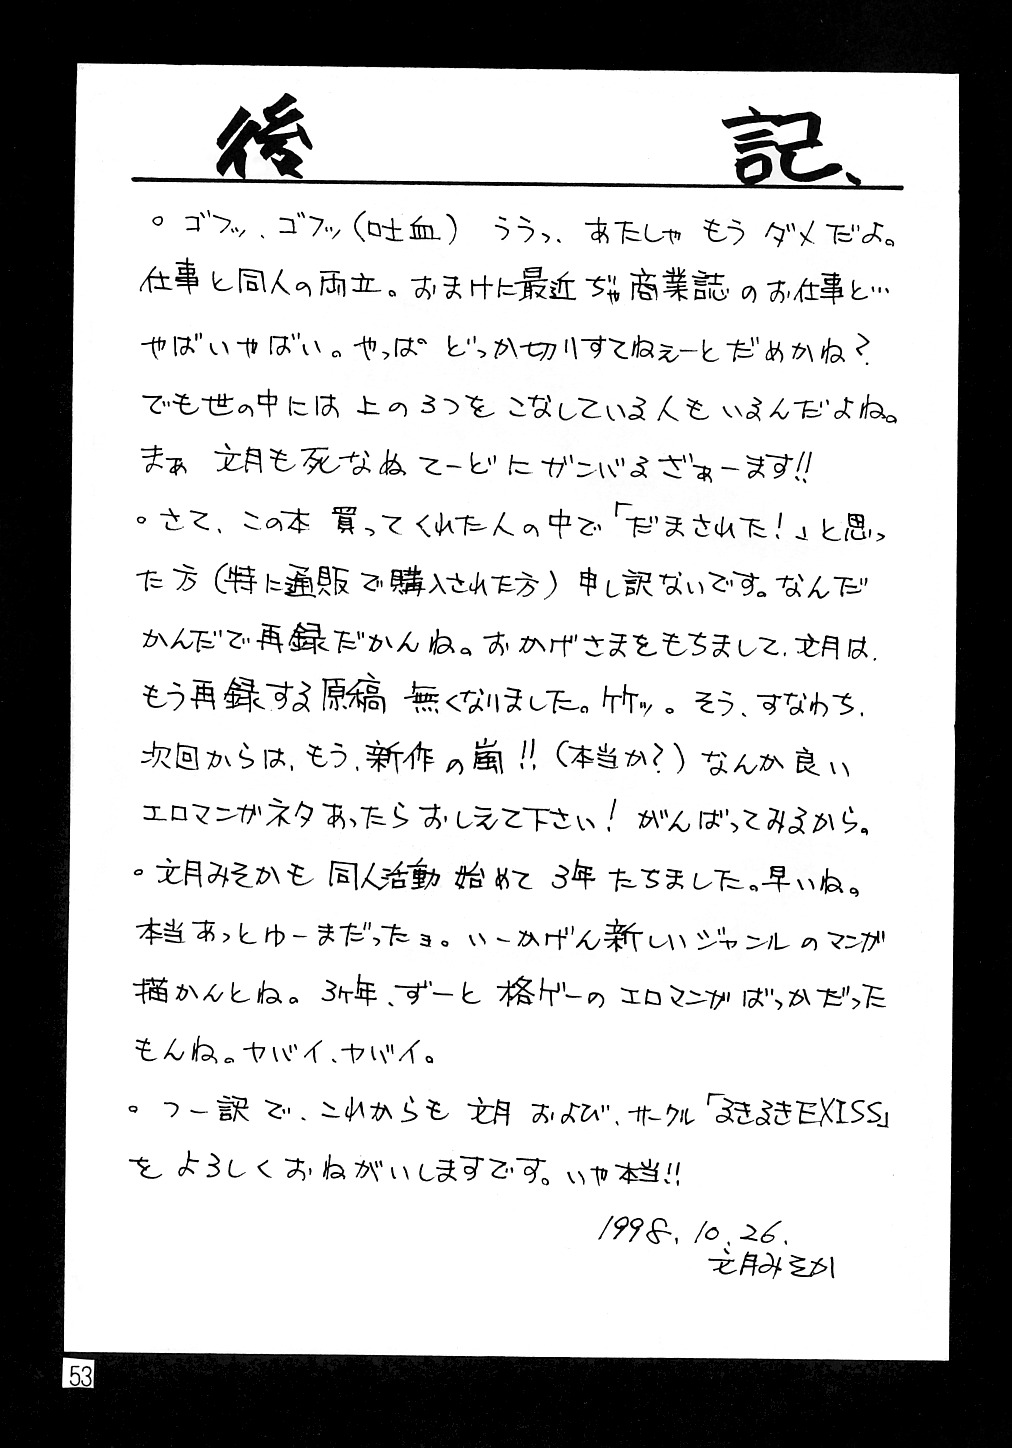 後記、
。ゴフッ、ゴフッ(吐血) ううっ、あたしゃ もう ダメだよ。
仕事と同人の両立。おまけに最近ぢゃ商業誌のお仕事と…
やばいやばい。やっぱ どっか切りすてねぇーとだめかね?
でも世の中には上の3つをこなしている人もいるんだよね。
まぁ 文月も死なぬてーどにガンバるざぁーます!!
。さて、この本買ってくれた人の中で「だまされた!」と思っ
た方(特に通販で購入された方)申し訳ないです。なんだ
かんだで再録だかんね。おかげさまをもちまして、文月は、
もう再録する原稿無くなりました。ケケッ。そう、すなわち、
次回からは、もう、新作の嵐!!(本当か?)なんか良い
エロマンガネタあったらおしえて下さい!がんばってみるから。
。文月みそかも同人活動始めて3年たちました。早いね。
本当あっとゆーまだったョ。いーかげん新しいジャンルのマンガ
描かんとね。3ヶ年、ずーと格ゲーのエロマンガばっかだった
もんね。ヤバイ、ヤバイ。
。つー訳で、これからも文月および、サークル「るきるきEXISS」
をよろしくおねがいしますです。いや本当!!
1998.10.26.
文月みそか
53